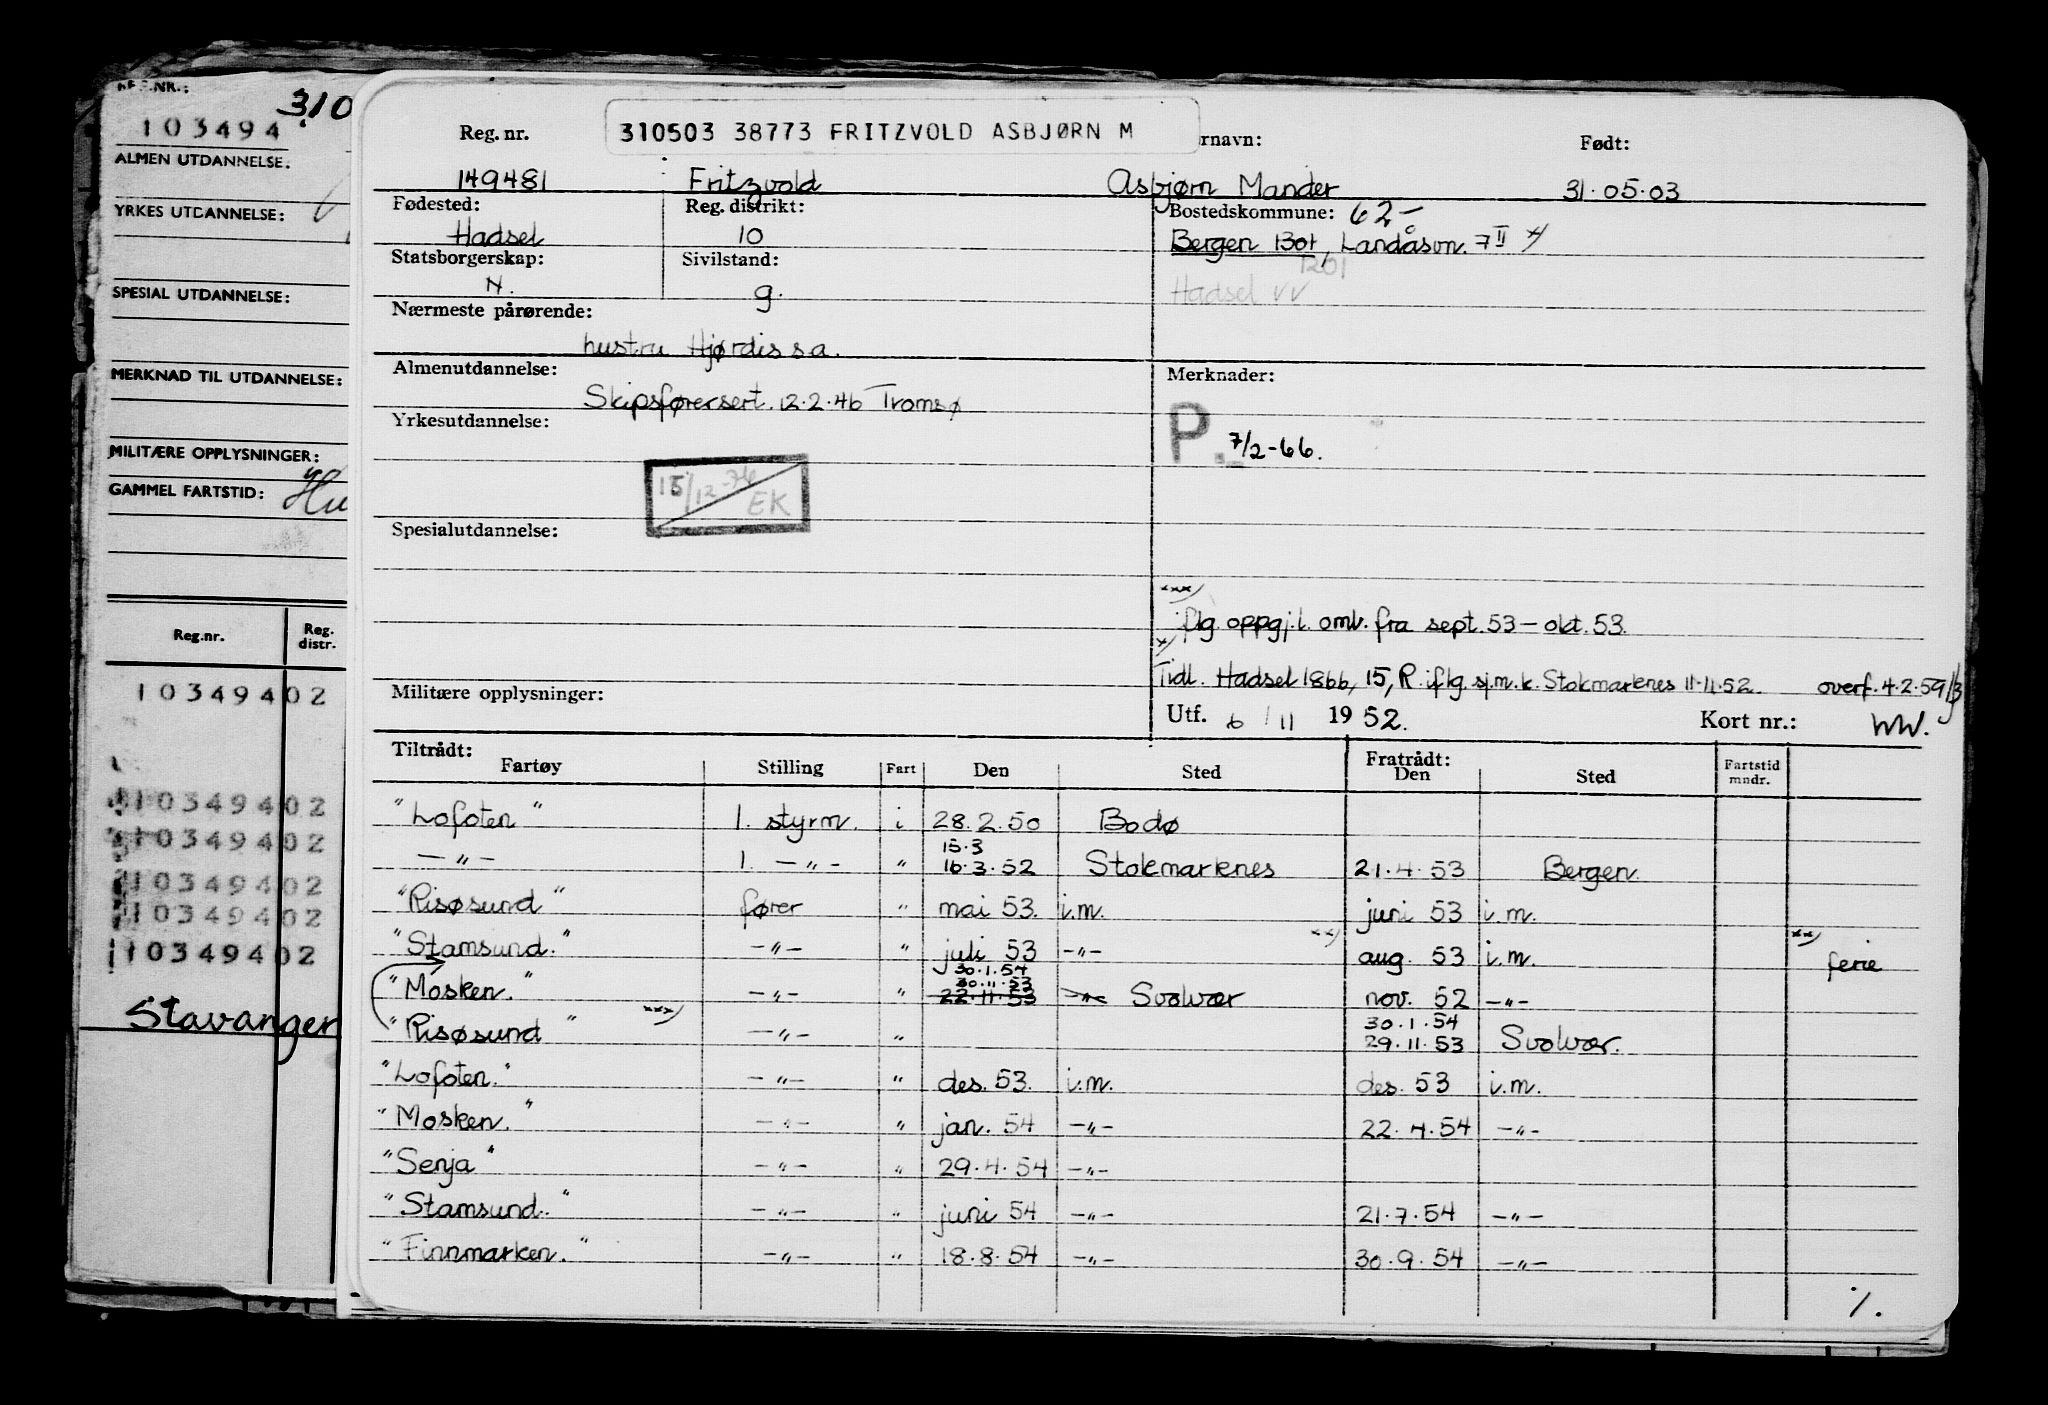 REG.NR.:
310
103494
ALMEN UTDANNELSE.
YRKES UTDANNELSE:
SPESIAL UTDANNELSE:
MERKNAD TIL UTDANNELSE:
MILITÆRE OPPLYSNINGER:
GAMMEL FARTSTID:
Reg.nr. Reg. distr.
10349402
10349402
10349402
10349402
10349402
10349402
Stavanger
Reg. nr. 310503 38773 FRITZVOLD ASBJØRN M rnavn: Født:
149481 Fritzvold Asbjørn Mander 31.05.03
Fødested: Reg. distrikt: Bostedskommune: 62-
Hadsel 10 Bergen 1301, Landåsvn. 7 II x)
Statsborgerskap: Sivilstand: 1201
N. g. Hadsel vv
Nærmeste pårørende:
hustru Hjørdis s.a.
Almenutdannelse: Merknader:
Skipsførersert. 12.2.46 Tromsø
Yrkesutdannelse: P. 7/2-66.
15/12-76 EK
Spesialutdannelse:
xxx)
iflg. oppgj.l. omb. fra sept. 53 - okt. 53.
x)
Tidl. Hadsel 1866, 15, R. iflg. sj.m.k. Stokmarknes 11.11.52. overf. 4.2.59
Militære opplysninger: Utf. 6/11 1952. Kort nr.: WW.
Tiltrådt: Fratrådt:
Fartøy Stilling Fart Den Sted Den Sted Fartstid mndr.
"Lofoten" 1. styrm. i 28.2.50 Bodø
15.3
-"- 1. -"- " 16.3.52 Stokmarknes 21.4.53 Bergen.
"Risøsund" fører " mai 53. i.m. juni 53 i.m.
"Stamsund." -"- " juli 53 -"- xx) aug. 53 i.m. xx) ferie
30.1.54
30.11.53
"Mosken." -"- " 22.11.53 -"- Svolvær nov. 52 -"-
30.1.54
"Risøsund" xxx) -"- " 29.11.53 Svolvær.
"Lofoten." -"- " des. 53. i.m. des. 53 i.m.
"Mosken." -"- " jan. 54 -"- 22.4.54 -"-
"Senja" -"- " 29.4.54 -"-
"Stamsund." -"- " juni 54 -"- 21.7.54 -"-
"Finnmarken." -"- " 18.8.54 -"- 30.9.54 -"-
%.